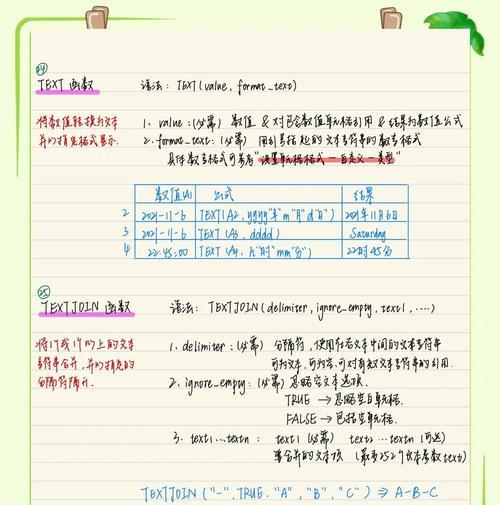 24
TEXT 函数
语法: TEXT(value, format_text)
将数值转换为文本
并以指定格式显示.
1. value: (必需) 数值 & 对包含数值单元格引用 & 结果为数值公式
2. format_text: (必需) 用引号括起的文本字符串的数字格式
具体数字格式可参考"设置单元格格式—自定义—类型"
数值(A) 公式 结果
2 2021-11-6 TEXT(A2, yyyy"年"m"月"d"日") 2021年11月6日
3 2021-11-6 TEXT (A3, dddd) Saturday
4 22:45:00 TEXT (A4, h"时"mm"分") 22时45分
25
TEXTJOIN 函数
语法: TEXTJOIN(delimiter, ignore_empty, text1, ....)
将1个或1个以上的文本
字符串合并, 并以指定的
分隔符隔开.
1. delimiter: (必需) 分隔符, 使用在各文本中间的文本字符串
可为文本, 可为空, 可对有效文本字符串的引用.
2. ignore_empty: (必需) 忽略空文本选项.
TRUE → 忽略空白单元格.
FALSE → 包括空单元格.
3. text1...textn: text1 (必需) text2...textn (可选)
要合并的文本项 (最多252个文本参数text)
TEXTJOIN ("-", TRUE, "A", "B", "C") ⇒ A-B-C